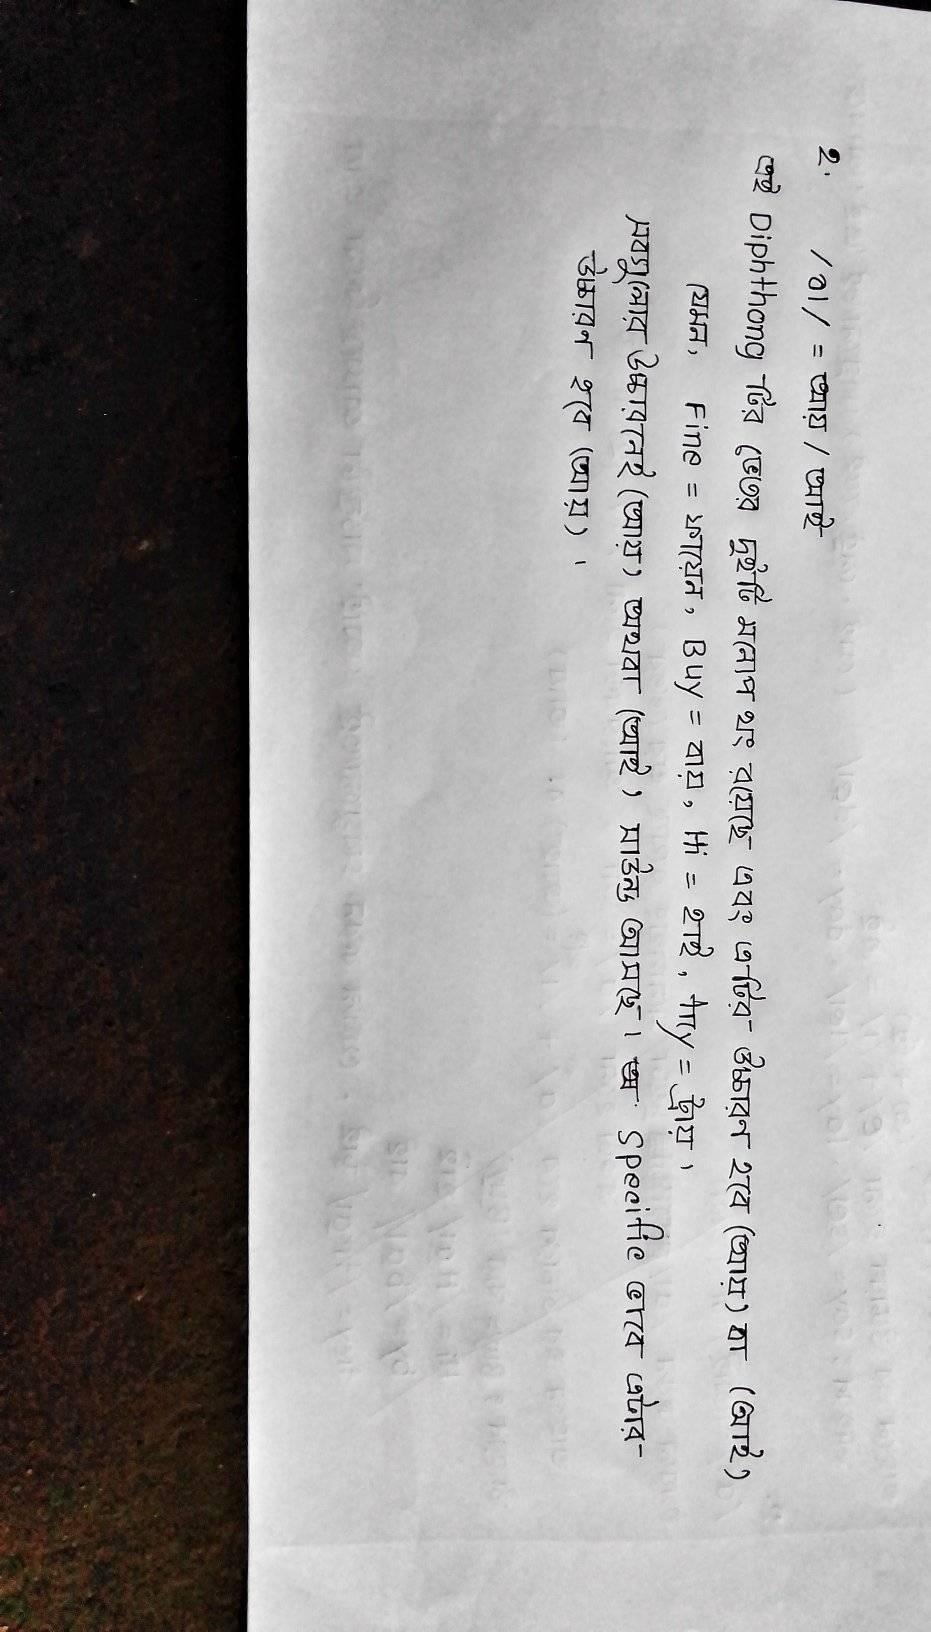 2. /aI/ = আয়/আই
এই Diphthong টির ভেতর দুইটি মনোপথং রয়েছে এবং এটির উচ্চারণ হবে (আয়) বা (আই)
যেমন, Fine = ফায়েন, Buy = বায়, Hi = হাই, Try = ট্রায়,
সবগুলোর উচ্চারনেই (আয়) অথবা (আই) সাউন্ড আসছে। Specific ভাবে এটার
উচ্চারণ হবে (আয়)।